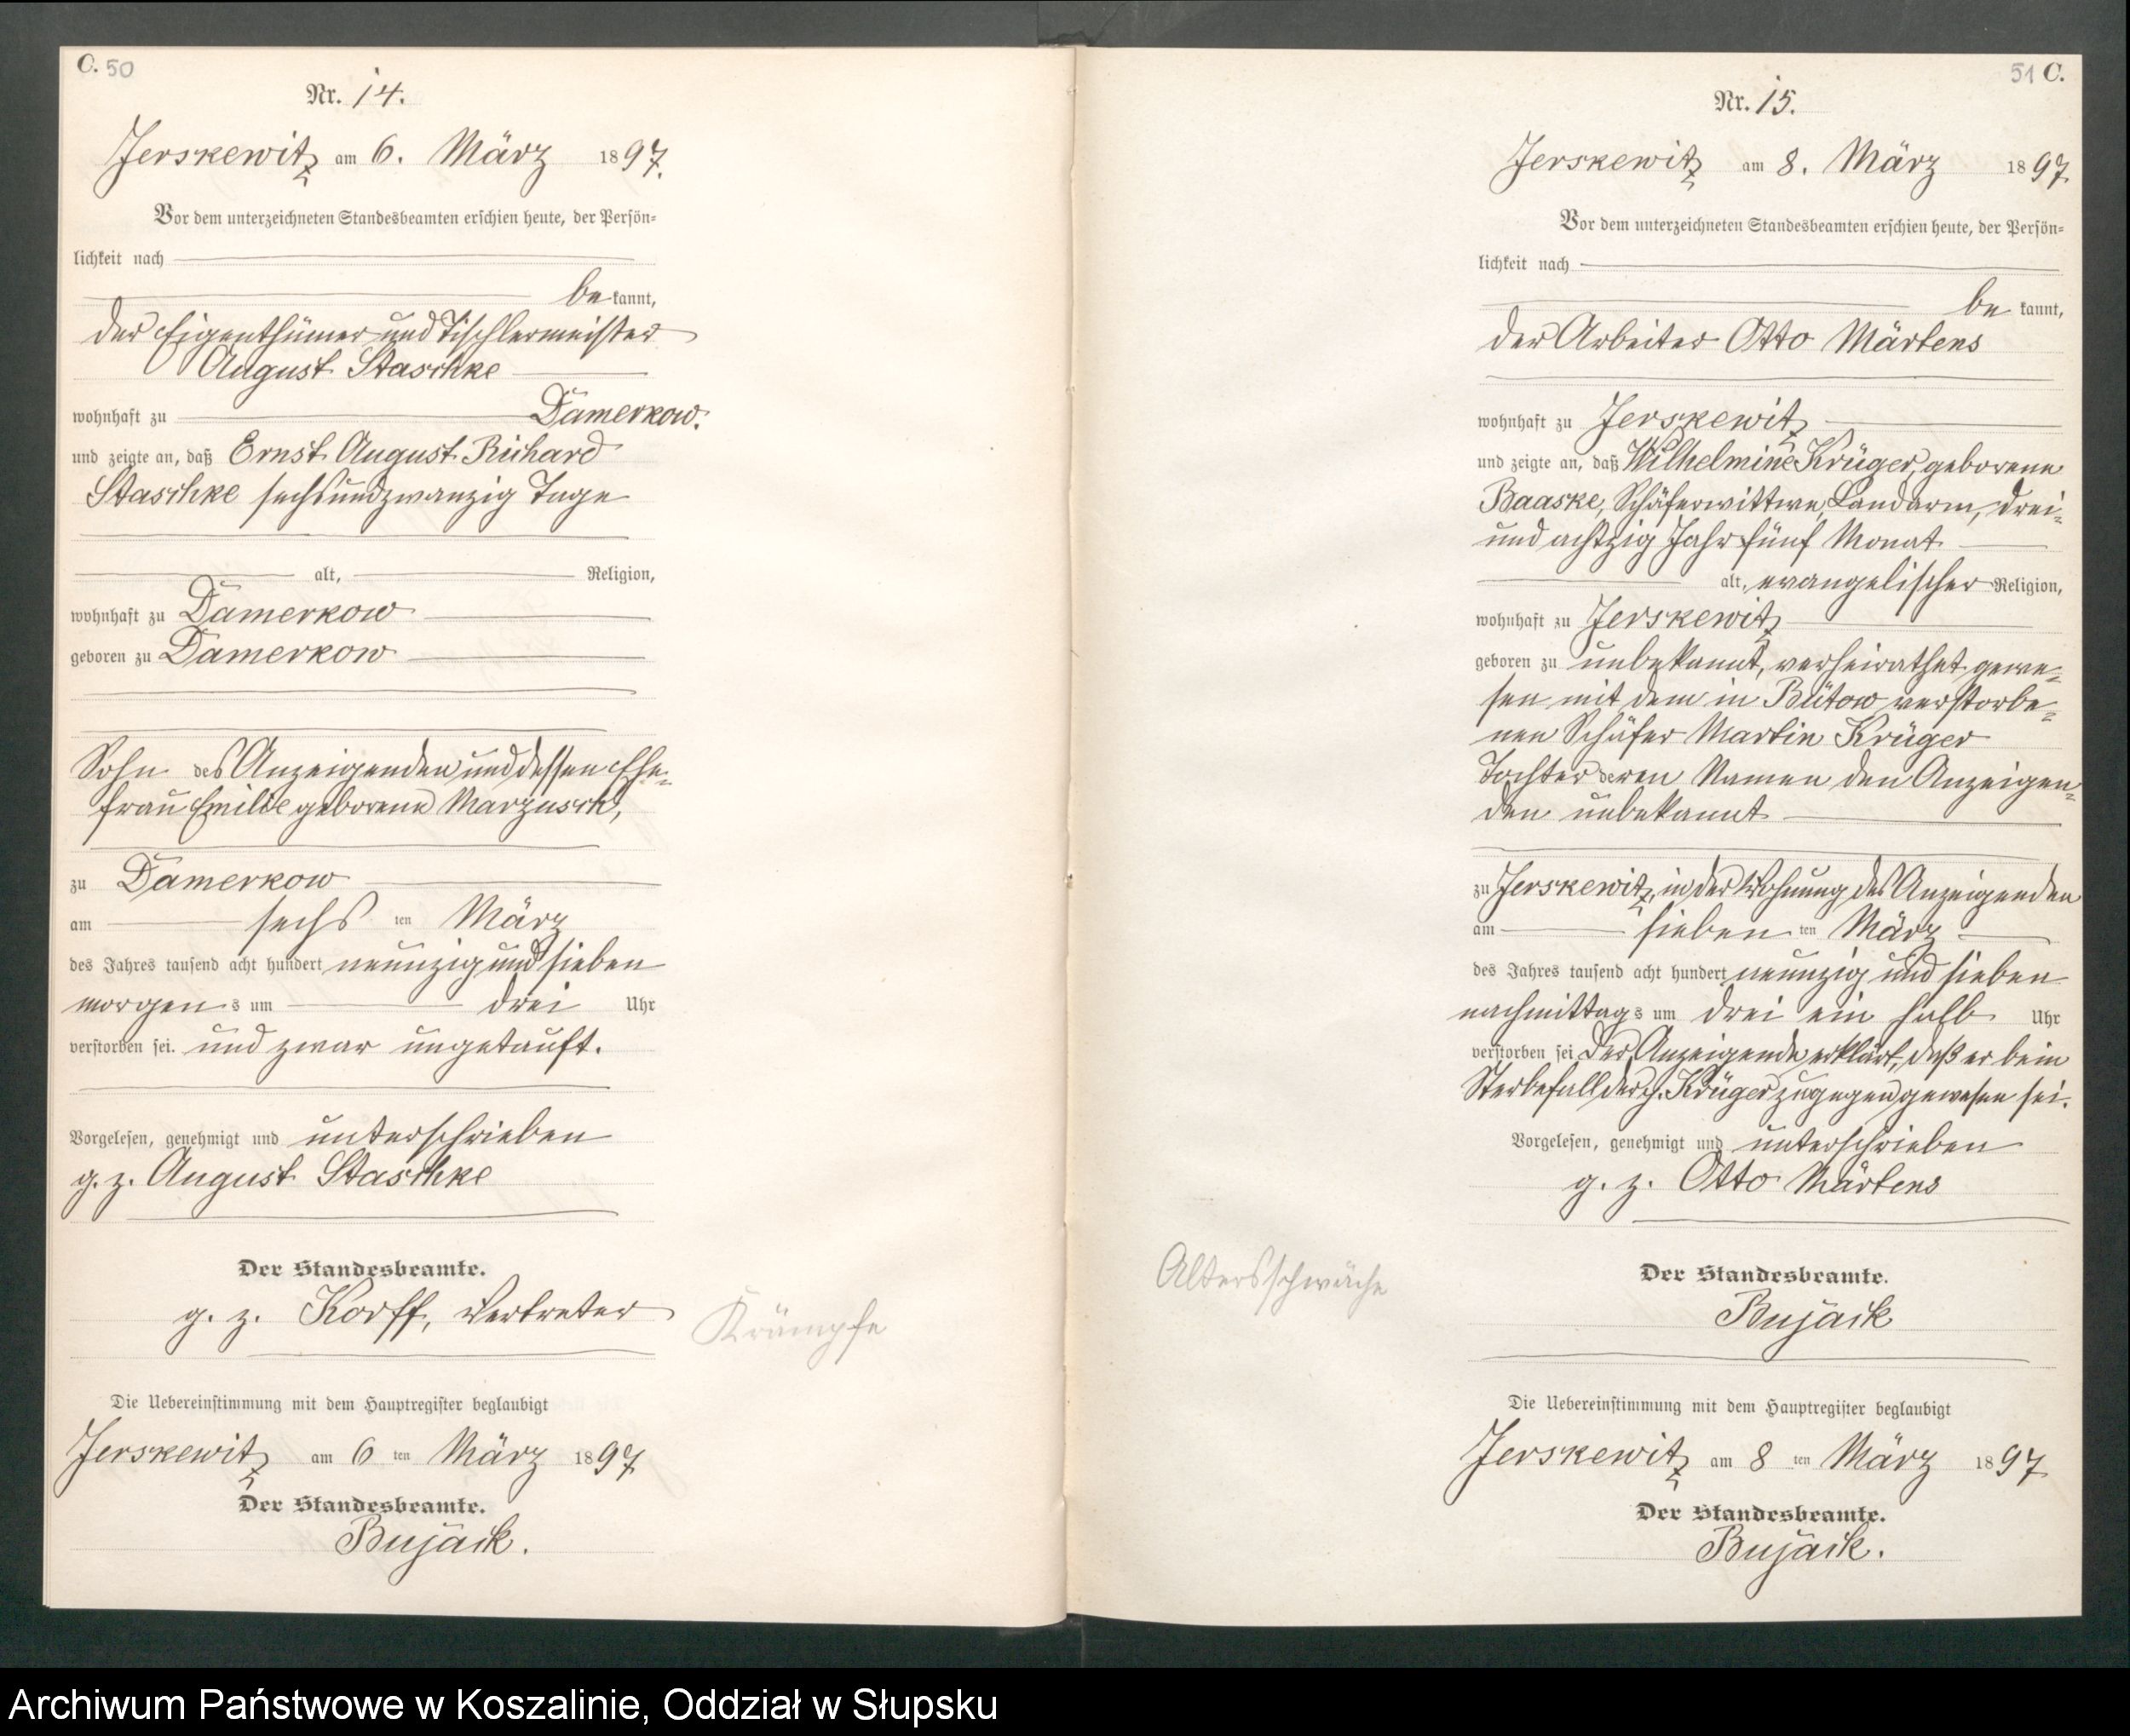 C. 50
Nr. 14.
Jerskewitz am 6. März 1897.
Vor dem unterzeichneten Standesbeamten erschien heute, der Persön-
lichkeit nach
bekannt,
der Eigenthümer und Tischlermeister
August Staschke
wohnhaft zu Damerkow.
und zeigte an, daß Ernst August Richard
Staschke sechsundzwanzig Tage
alt, Religion,
wohnhaft zu Damerkow
geboren zu Damerkow
Sohn des Anzeigenden und dessen Ehe-
frau Emilie geborene Marzusch,
zu Damerkow
am sechs ten März
des Jahres tausend acht hundert neunzig und sieben
morgens um drei Uhr
verstorben sei. und zwar ungetauft.
Vorgelesen, genehmigt und unterschrieben
g. z. August Staschke
Der Standesbeamte.
g. z. Korff, Vertreter
Krämpfe
Die Uebereinstimmung mit dem Hauptregister beglaubigt
Jerskewitz am 6 ten März 1897
Der Standesbeamte.
Bujack.
51 C.
Nr. 15.
Jerskewitz am 8. März 1897.
Vor dem unterzeichneten Standesbeamten erschien heute, der Persön-
lichkeit nach
bekannt,
der Arbeiter Otto Märtens
wohnhaft zu Jerskewitz
und zeigte an, daß Wilhelmine Krüger, geborene
Baaske, Schäferwittwe, Landarm, drei-
und achtzig Jahr fünf Monat
alt, evangelischer Religion,
wohnhaft zu Jerskewitz
geboren zu unbekannt, verheirathet gewe-
sen mit dem in Bütow verstorbe-
nen Schäfer Martin Krüger
Tochter deren Namen den Anzeigen-
den unbekannt
zu Jerskewitz, in der Wohnung des Anzeigenden
am sieben ten März
des Jahres tausend acht hundert neunzig und sieben
nachmittags um drei ein halb Uhr
verstorben sei Der Anzeigende erklärt, daß er beim
Sterbefall der p. Krüger zugegen gewesen sei.
Vorgelesen, genehmigt und unterschrieben
g. z. Otto Märtens
Altersschwäche
Der Standesbeamte.
Bujack
Die Uebereinstimmung mit dem Hauptregister beglaubigt
Jerskewitz am 8 ten März 1897
Der Standesbeamte.
Bujack.
Archiwum Państwowe w Koszalinie, Oddział w Słupsku